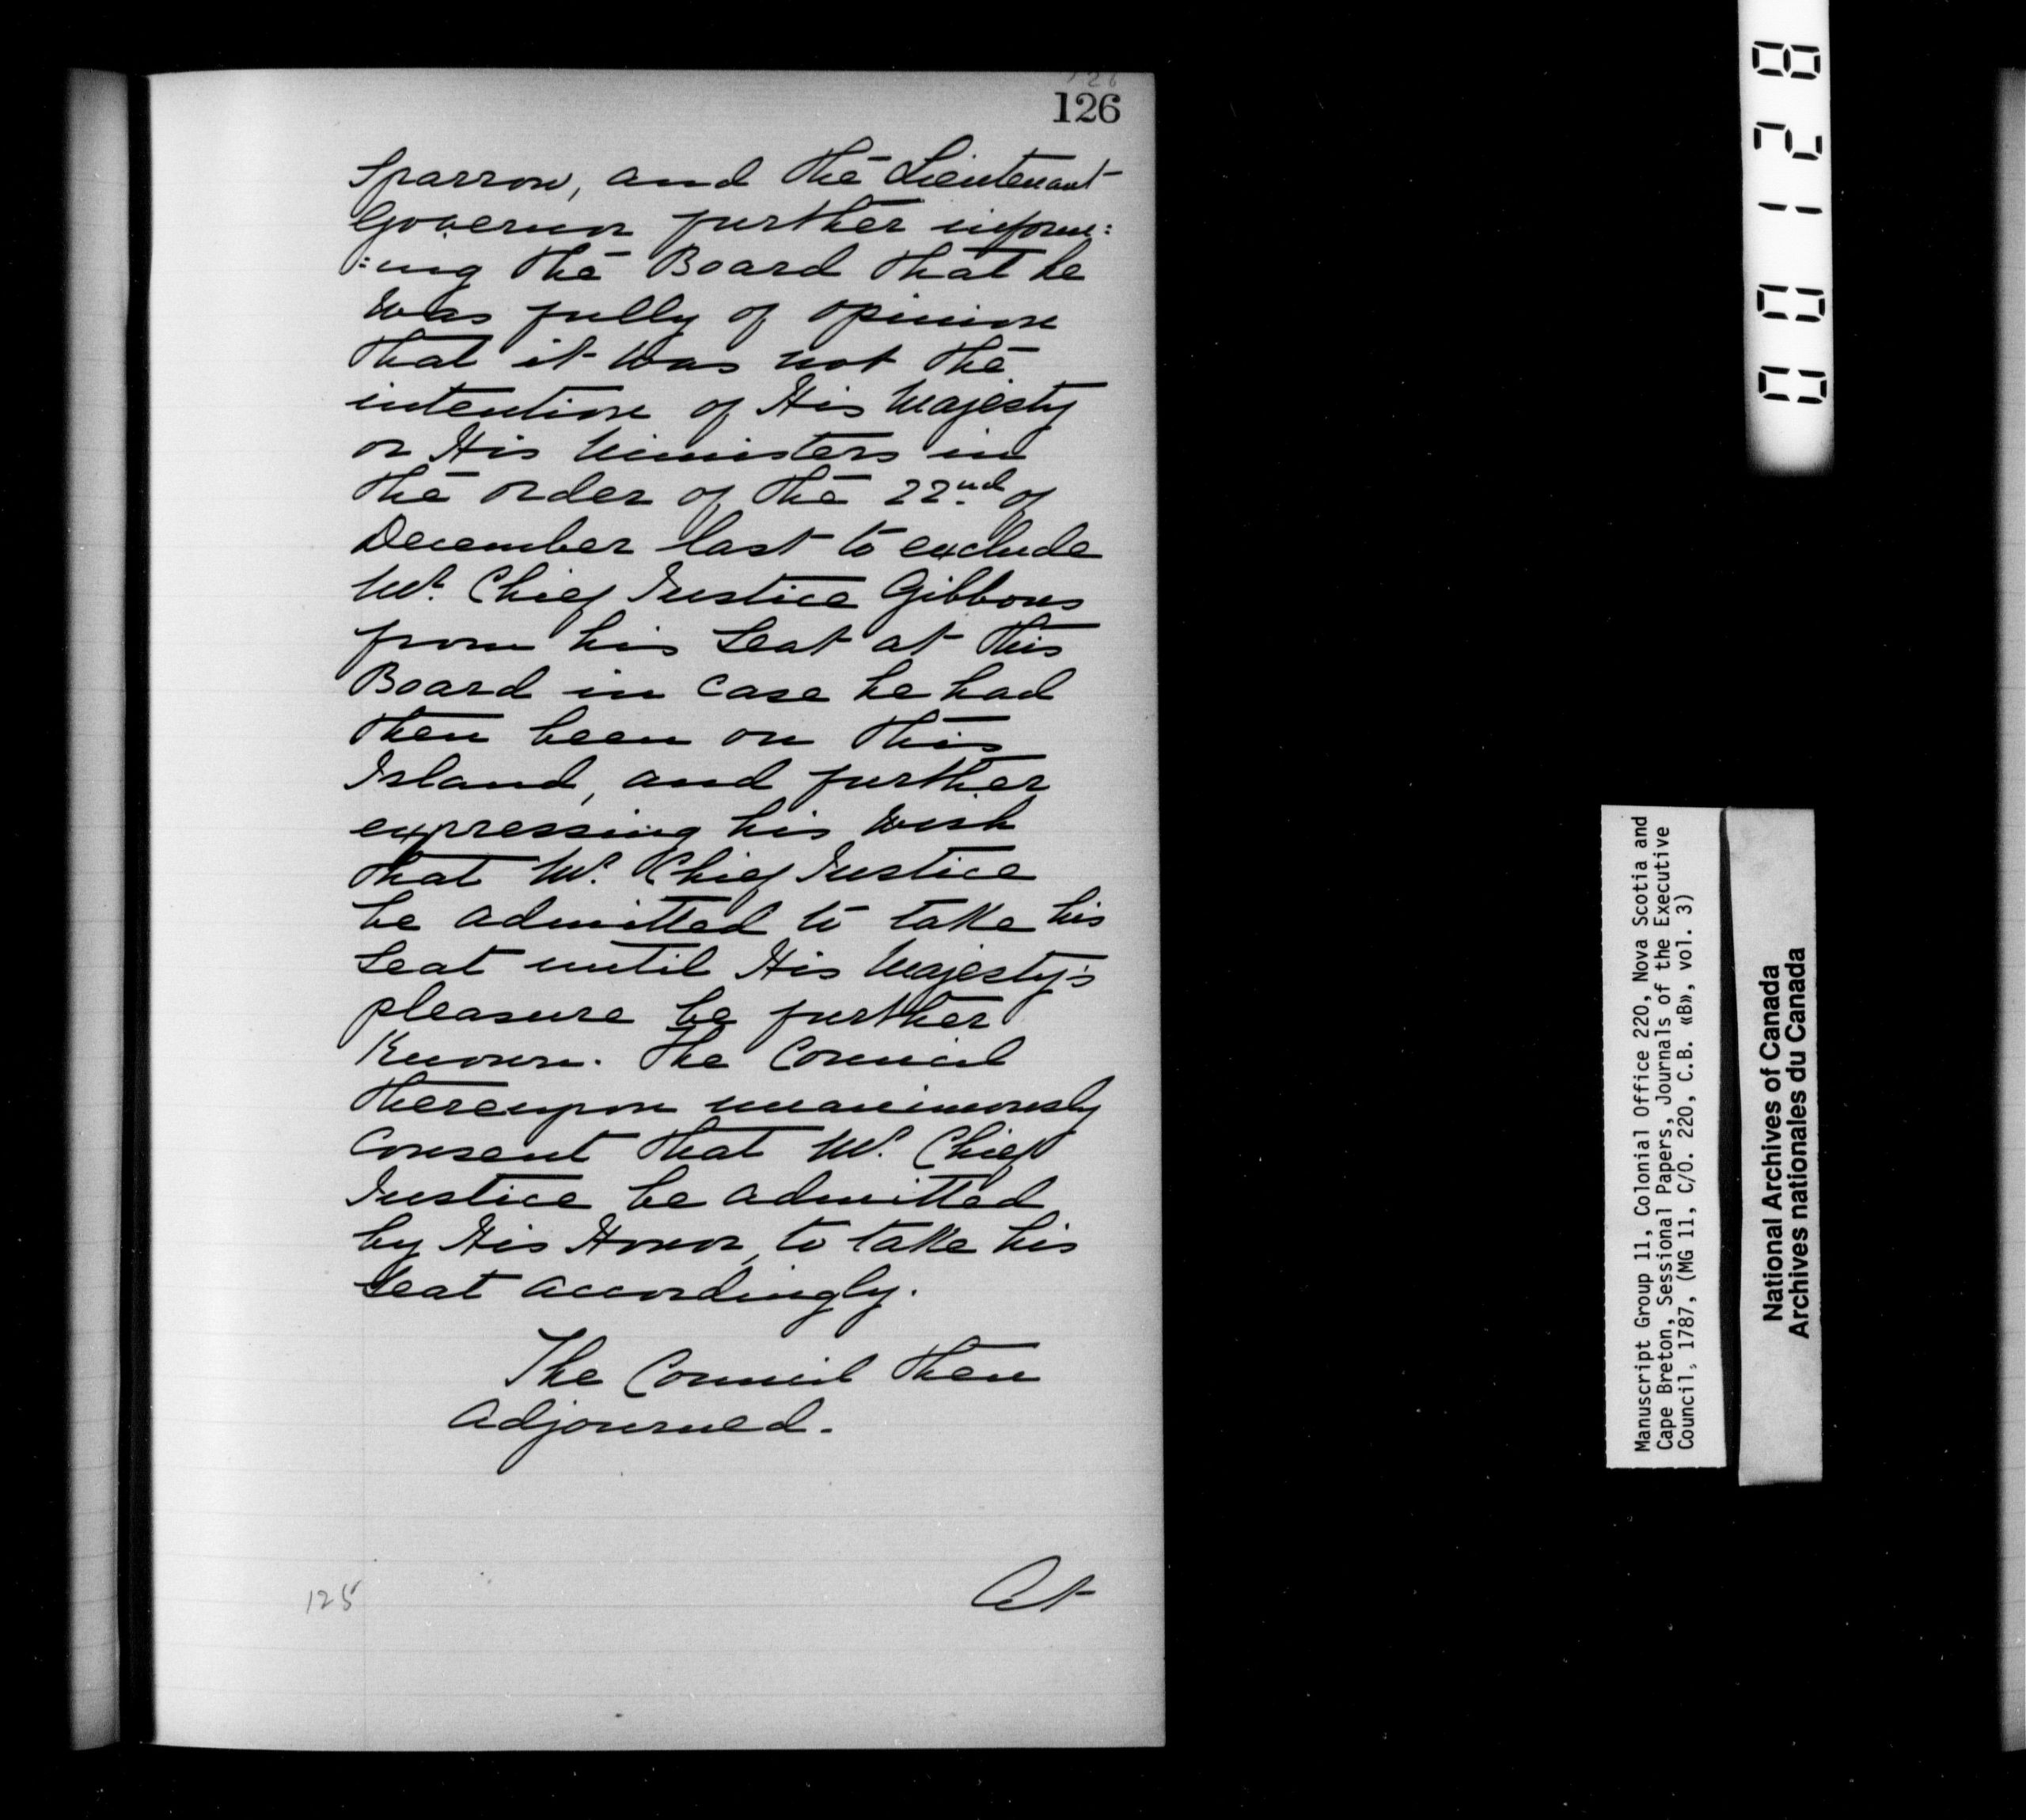 126
126
Sparrow, and the Lieutenant
Governor further inform:
:ing the Board that he
was fully of opinion
that it was not the
intention of His Majesty
or His Ministers in
the order of the 22nd of
December last to exclude
Mr. Chief Justice Gibbons
from his Seat at this
Board in case he had
then been on this
Island, and further
expressing his wish
that Mr. Chief Justice
be admitted to take his
Seat until His Majesty's
pleasure be further
Known. The Council
thereupon unanimously
Consent that Mr. Chief
Justice be admitted
by His Honor, to take his
Seat accordingly.
The Council then
adjourned.
At
125
00128
Manuscript Group 11, Colonial Office 220, Nova Scotia and
Cape Breton, Sessional Papers, Journals of the Executive
Council, 1787, (MG 11, C/O. 220, C.B. «B», vol. 3)
National Archives of Canada
Archives nationales du Canada